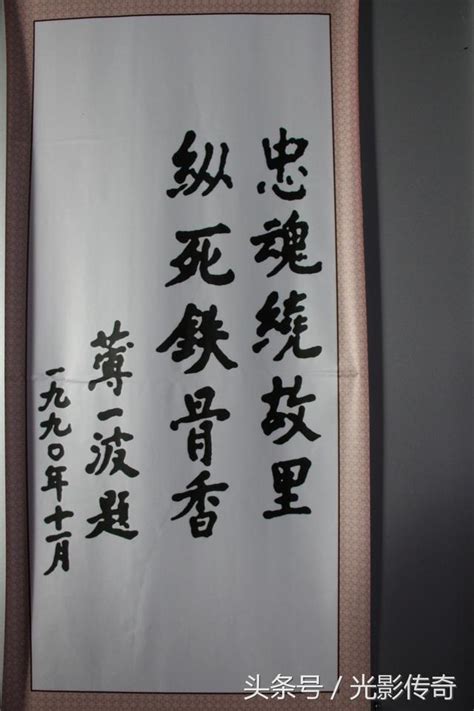 忠魂繞故里
纵死鉄骨香
薄一波题
一九九〇年十一月
头条号／光影传奇